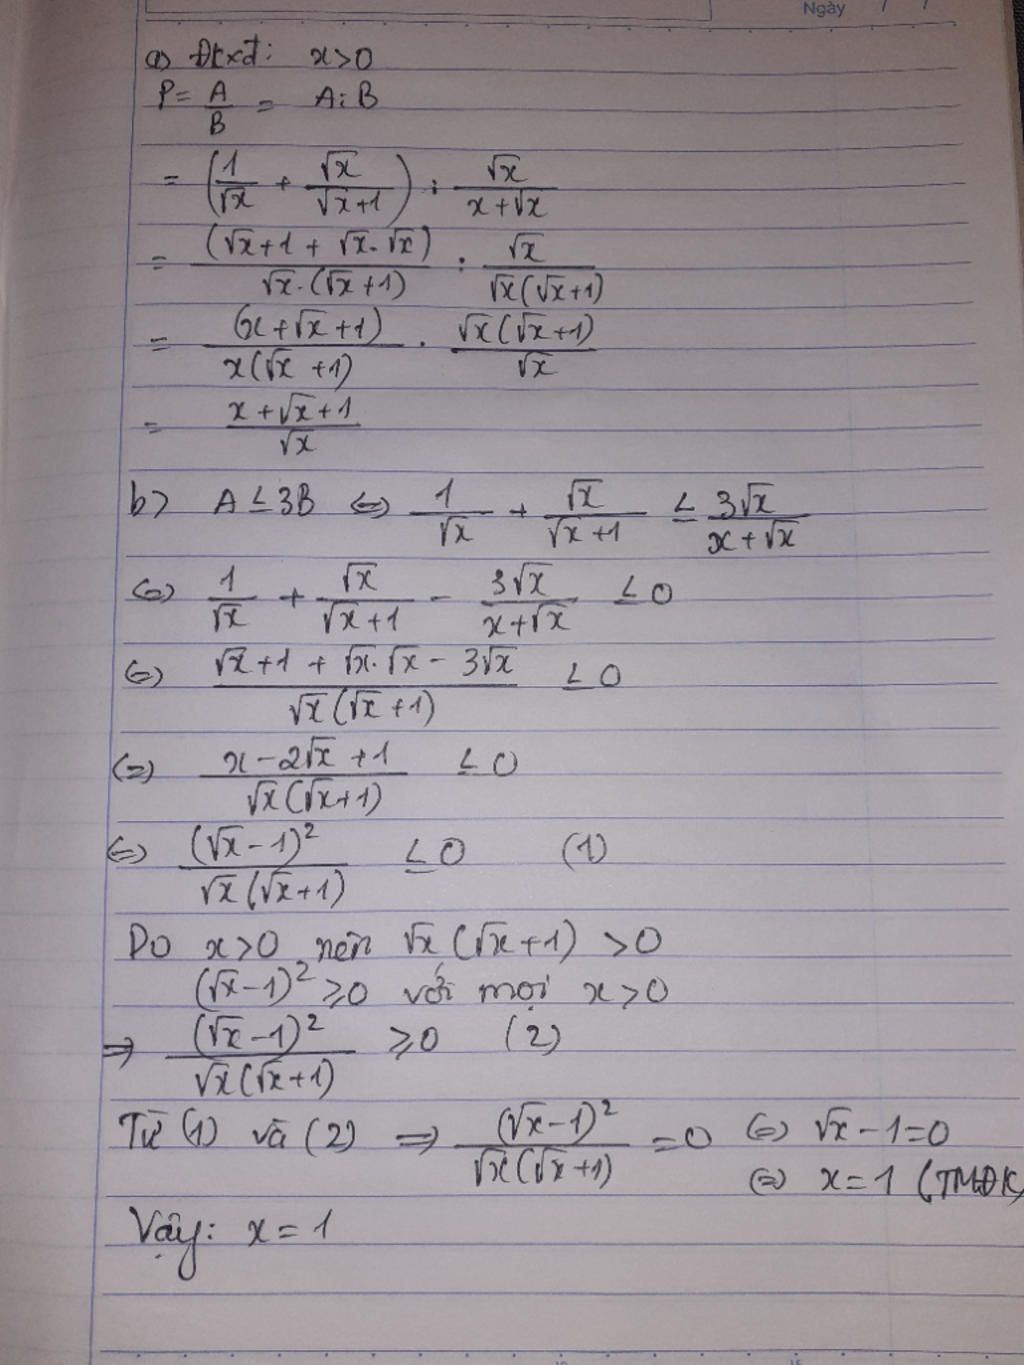 Ngày / /
a) Đkxđ: x>0
P = A/B = A : B
= (1/√x + √x/(√x+1)) : √x/(x+√x)
= (√x+1 + √x.√x)/(√x.(√x+1)) : √x/(√x(√x+1))
= (x+√x+1)/(x(√x+1)) . √x(√x+1)/√x
= (x+√x+1)/√x
b) A ≤ 3B ⇔ 1/√x + √x/(√x+1) ≤ 3√x/(x+√x)
⇔ 1/√x + √x/(√x+1) - 3√x/(x+√x) ≤ 0
⇔ (√x+1 + √x.√x - 3√x)/(√x(√x+1)) ≤ 0
⇔ (x-2√x+1)/(√x(√x+1)) ≤ 0
⇔ (√x-1)²/(√x(√x+1)) ≤ 0 (1)
Do x>0 nên √x(√x+1) >0
(√x-1)² ≥0 với mọi x>0
⇒ (√x-1)²/(√x(√x+1)) ≥0 (2)
Từ (1) và (2) ⇒ (√x-1)²/(√x(√x+1)) =0 ⇔ √x-1=0
⇔ x=1 (TMĐK)
Vậy: x=1